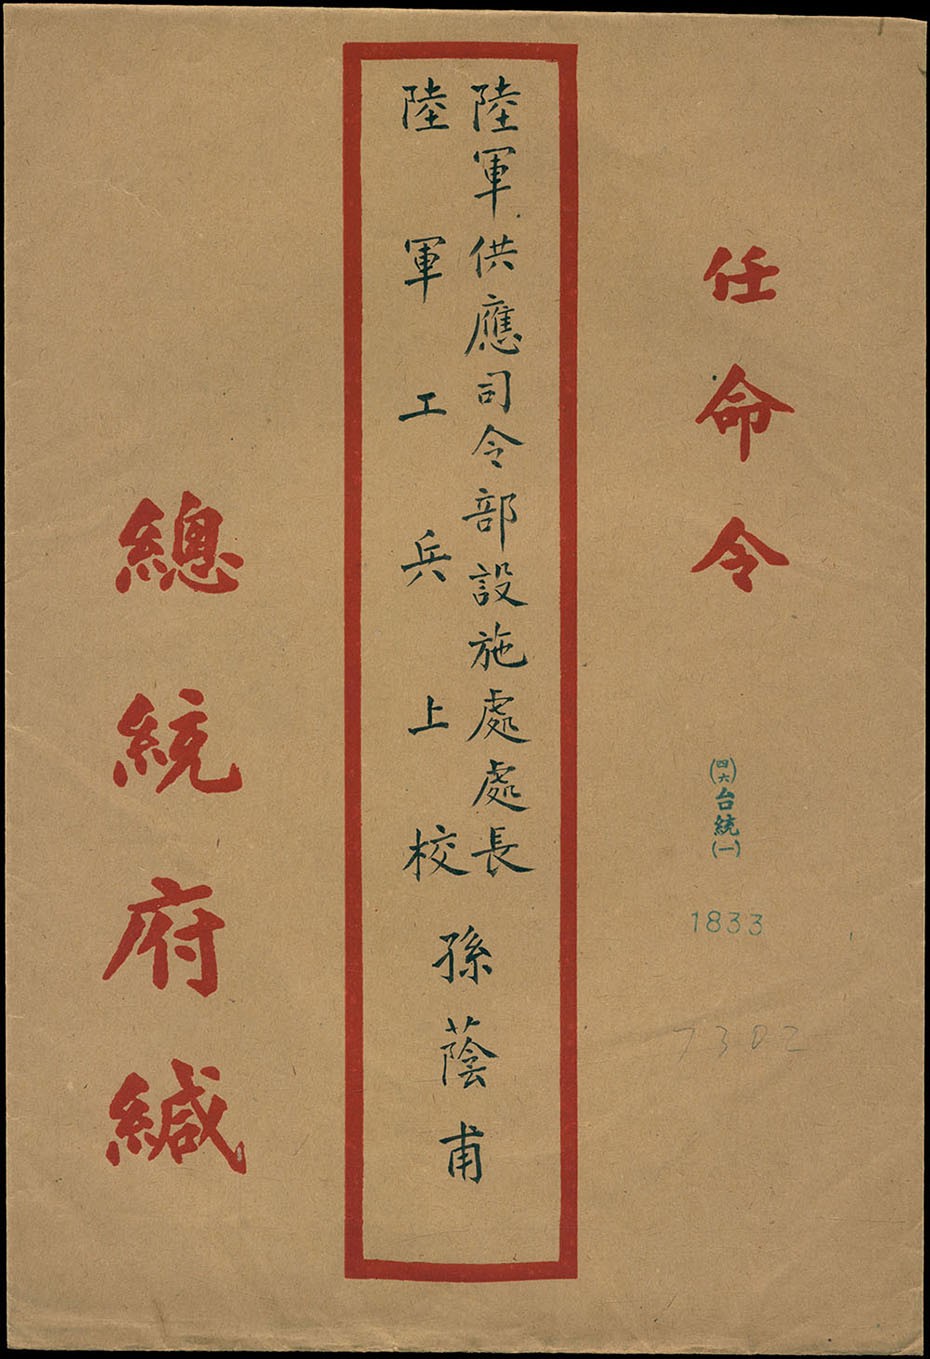 任命令
(四六)台統(一)
1833
7302
陸軍供應司令部設施處處長
陸軍工兵上校
孫蔭甫
總統府緘